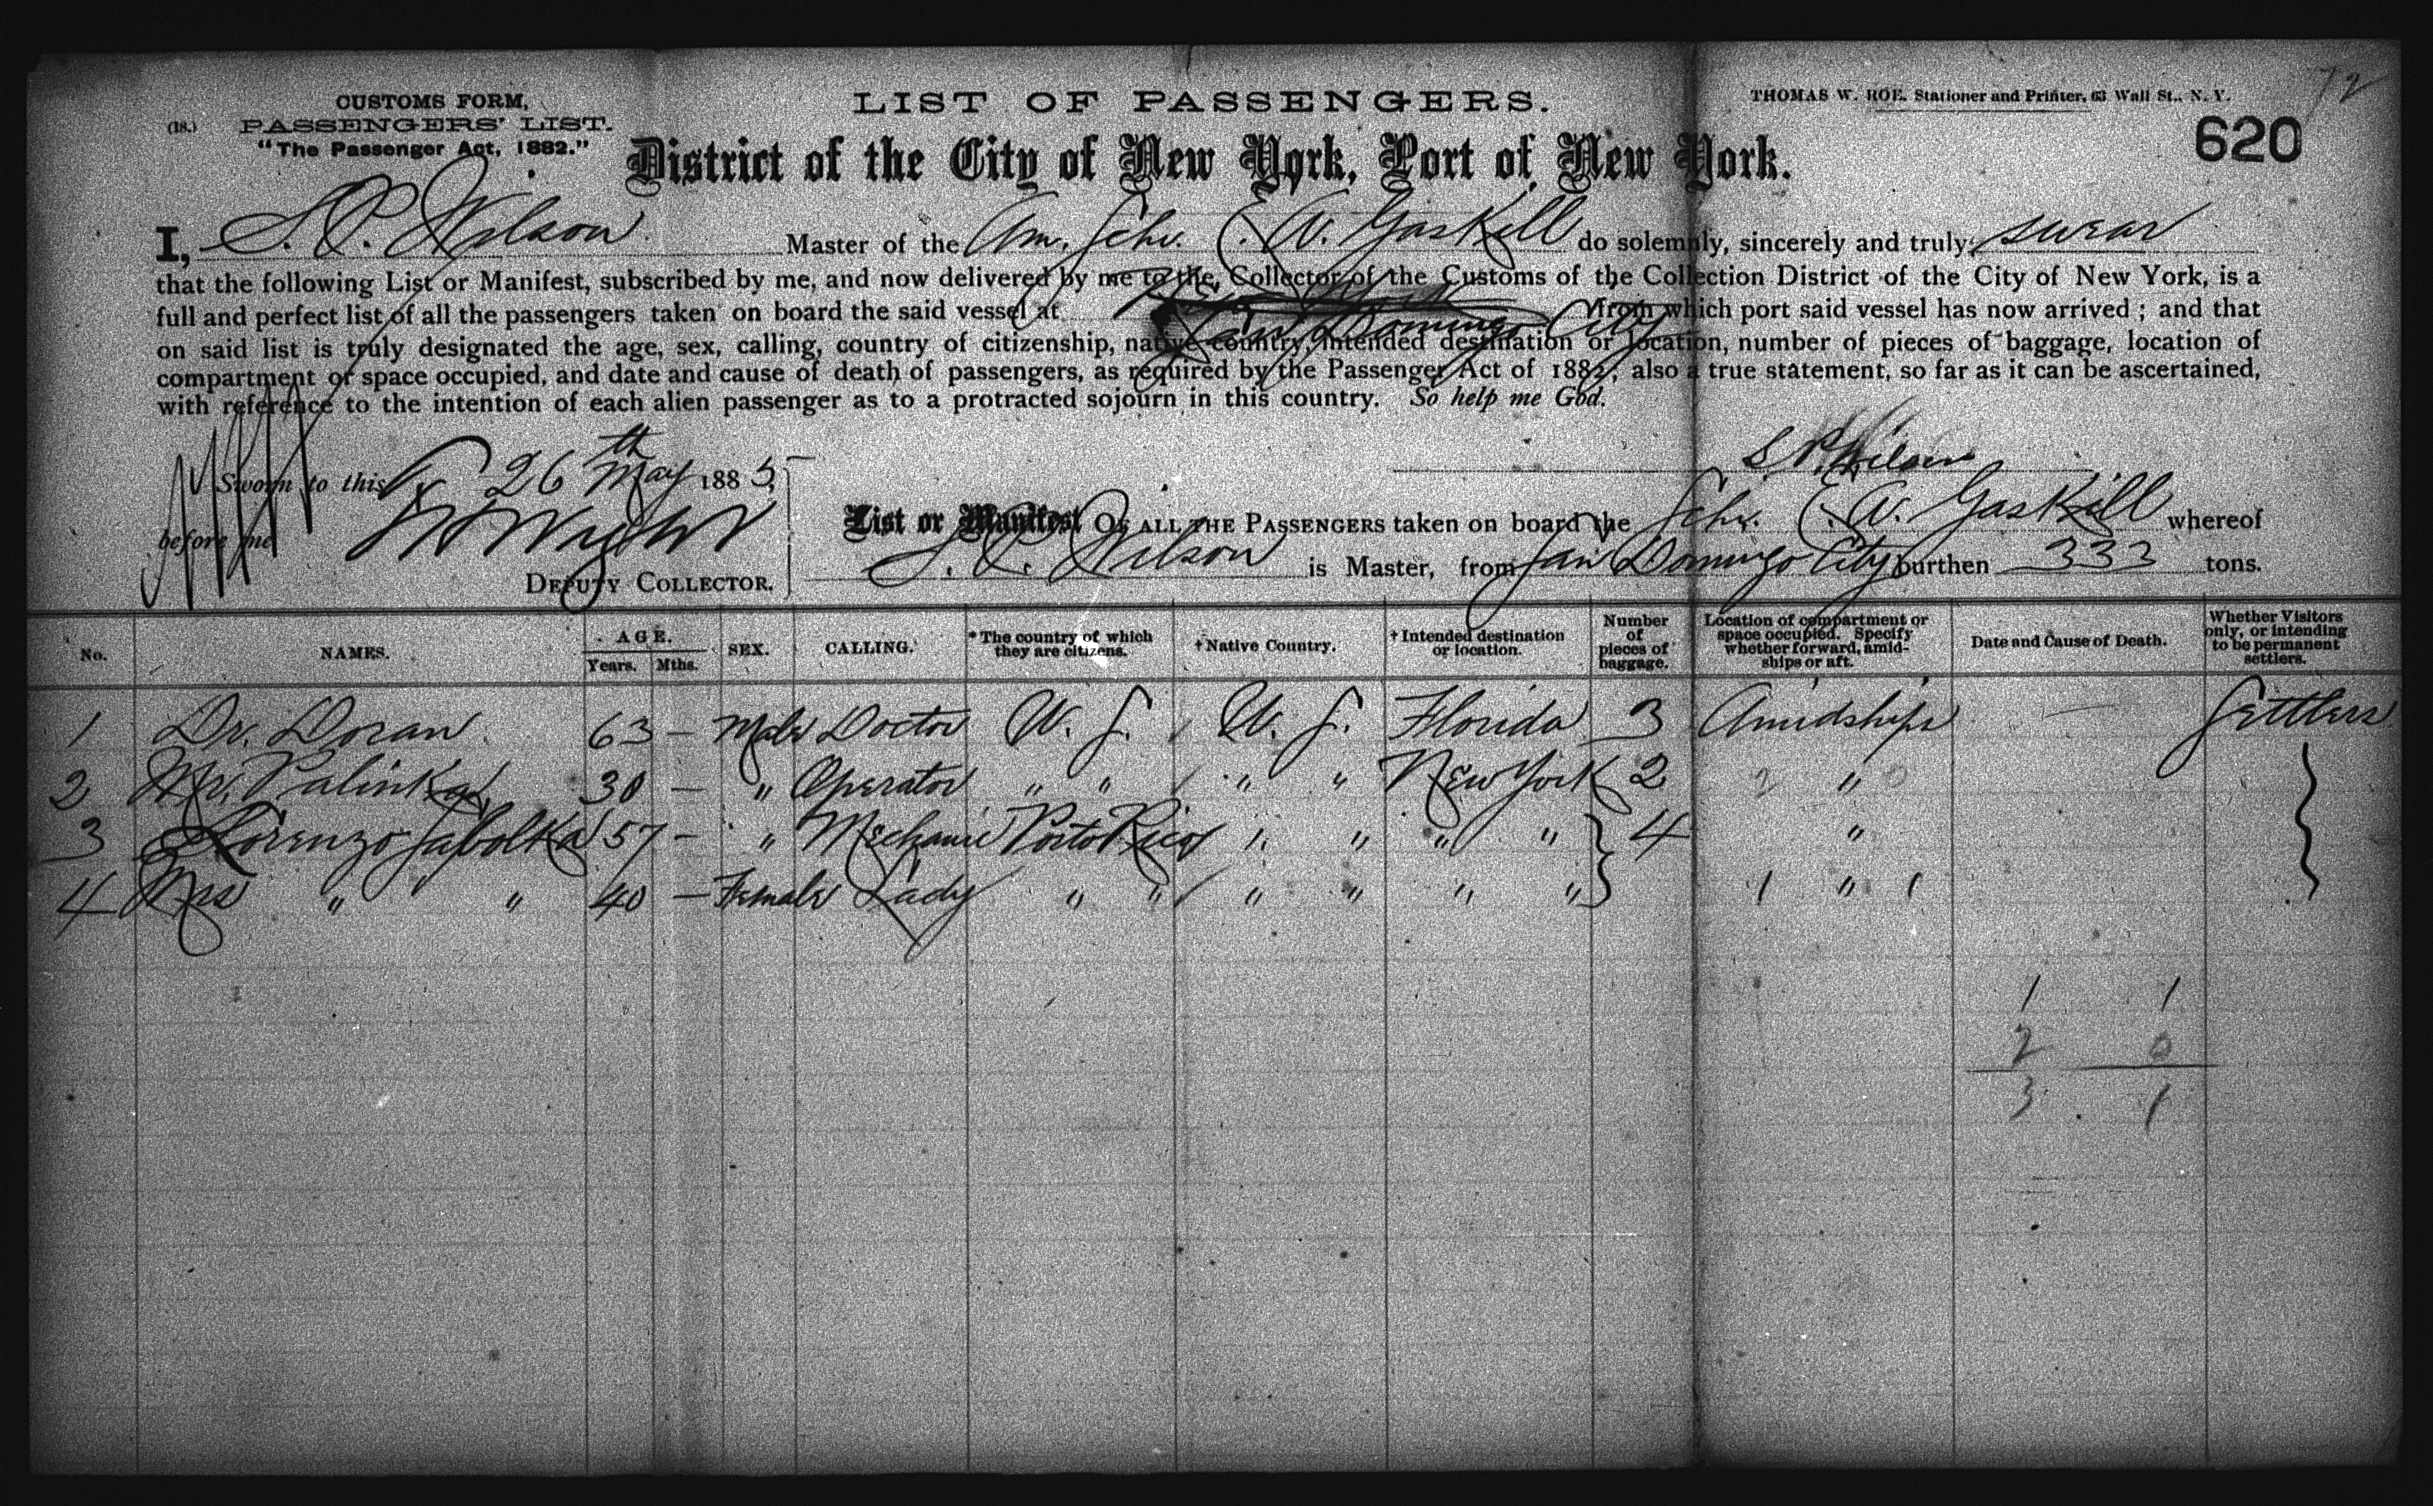 72
CUSTOMS FORM,
(18.) PASSENGERS' LIST.
"The Passenger Act, 1882."
LIST OF PASSENGERS.
THOMAS W. ROE. Stationer and Printer, 63 Wall St., N. Y.
620
District of the City of New York, Port of New York.
I, S. P. Wilson Master of the Am. Schr. C. W. Gaskill do solemnly, sincerely and truly swear
that the following List or Manifest, subscribed by me, and now delivered by me to the Collector of the Customs of the Collection District of the City of New York, is a
full and perfect list of all the passengers taken on board the said vessel at San Domingo City from which port said vessel has now arrived ; and that
on said list is truly designated the age, sex, calling, country of citizenship, native country, intended destination or location, number of pieces of baggage, location of
compartment or space occupied, and date and cause of death of passengers, as required by the Passenger Act of 1882; also a true statement, so far as it can be ascertained,
with reference to the intention of each alien passenger as to a protracted sojourn in this country. So help me God.
S. P. Wilson
Sworn to this 26th May 1885
before me
DEPUTY COLLECTOR.
List or Manifest OF ALL THE PASSENGERS taken on board the Schr. C. W. Gaskill whereof
S. P. Wilson is Master, from San Domingo City burthen 333 tons.
No. NAMES. AGE. Years. Mths. SEX. CALLING. * The country of which they are citizens. † Native Country. † Intended destination or location. Number of pieces of baggage. Location of compartment or space occupied. Specify whether forward, amidships or aft. Date and Cause of Death. Whether Visitors only, or intending to be permanent settlers.
1 Dr. Doran 63 — Male Doctor U. S. U. S. Florida 3 Amidships — Settlers
2 Mr. Palinka 30 — " Operator " " " " New York 2 2 " 0
3 Lorenzo Sabolka 57 — " Mechanic Porto Rico " " " " 4 "
4 Mrs " " 40 — Female Lady " " " " " " 1 " 1
1 1
2 0
3 1